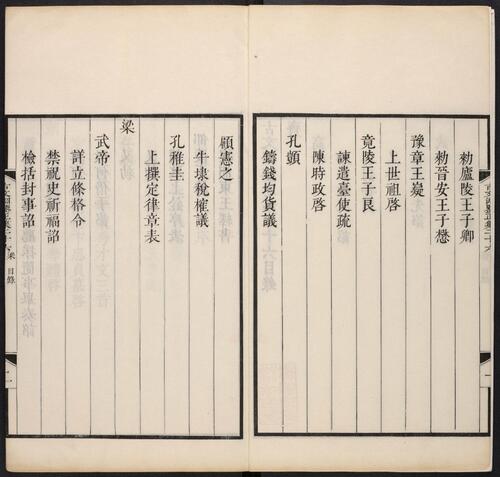 勑廬陵王子卿
勑晉安王子懋
豫章王嶷
上世祖啓
竟陵王子良
諫遣臺使疏
陳時政啓
孔顗
鑄錢均貨議
顧憲之
牛埭稅榷議
孔稚圭
上撰定律章表
梁
武帝
詳立條格令
禁祝史祈福詔
檢括封事詔